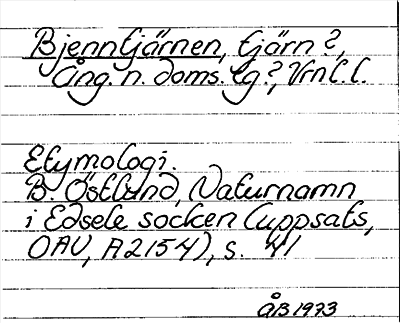 Bjenntjärnen, tjärn?,
Ång. n. doms. tg?, Vrnl.l.
Etymologi.
B. Östlund, Naturnamn
i Edsele socken (uppsats,
OAU, A2154), s. 41
ÅB 1973